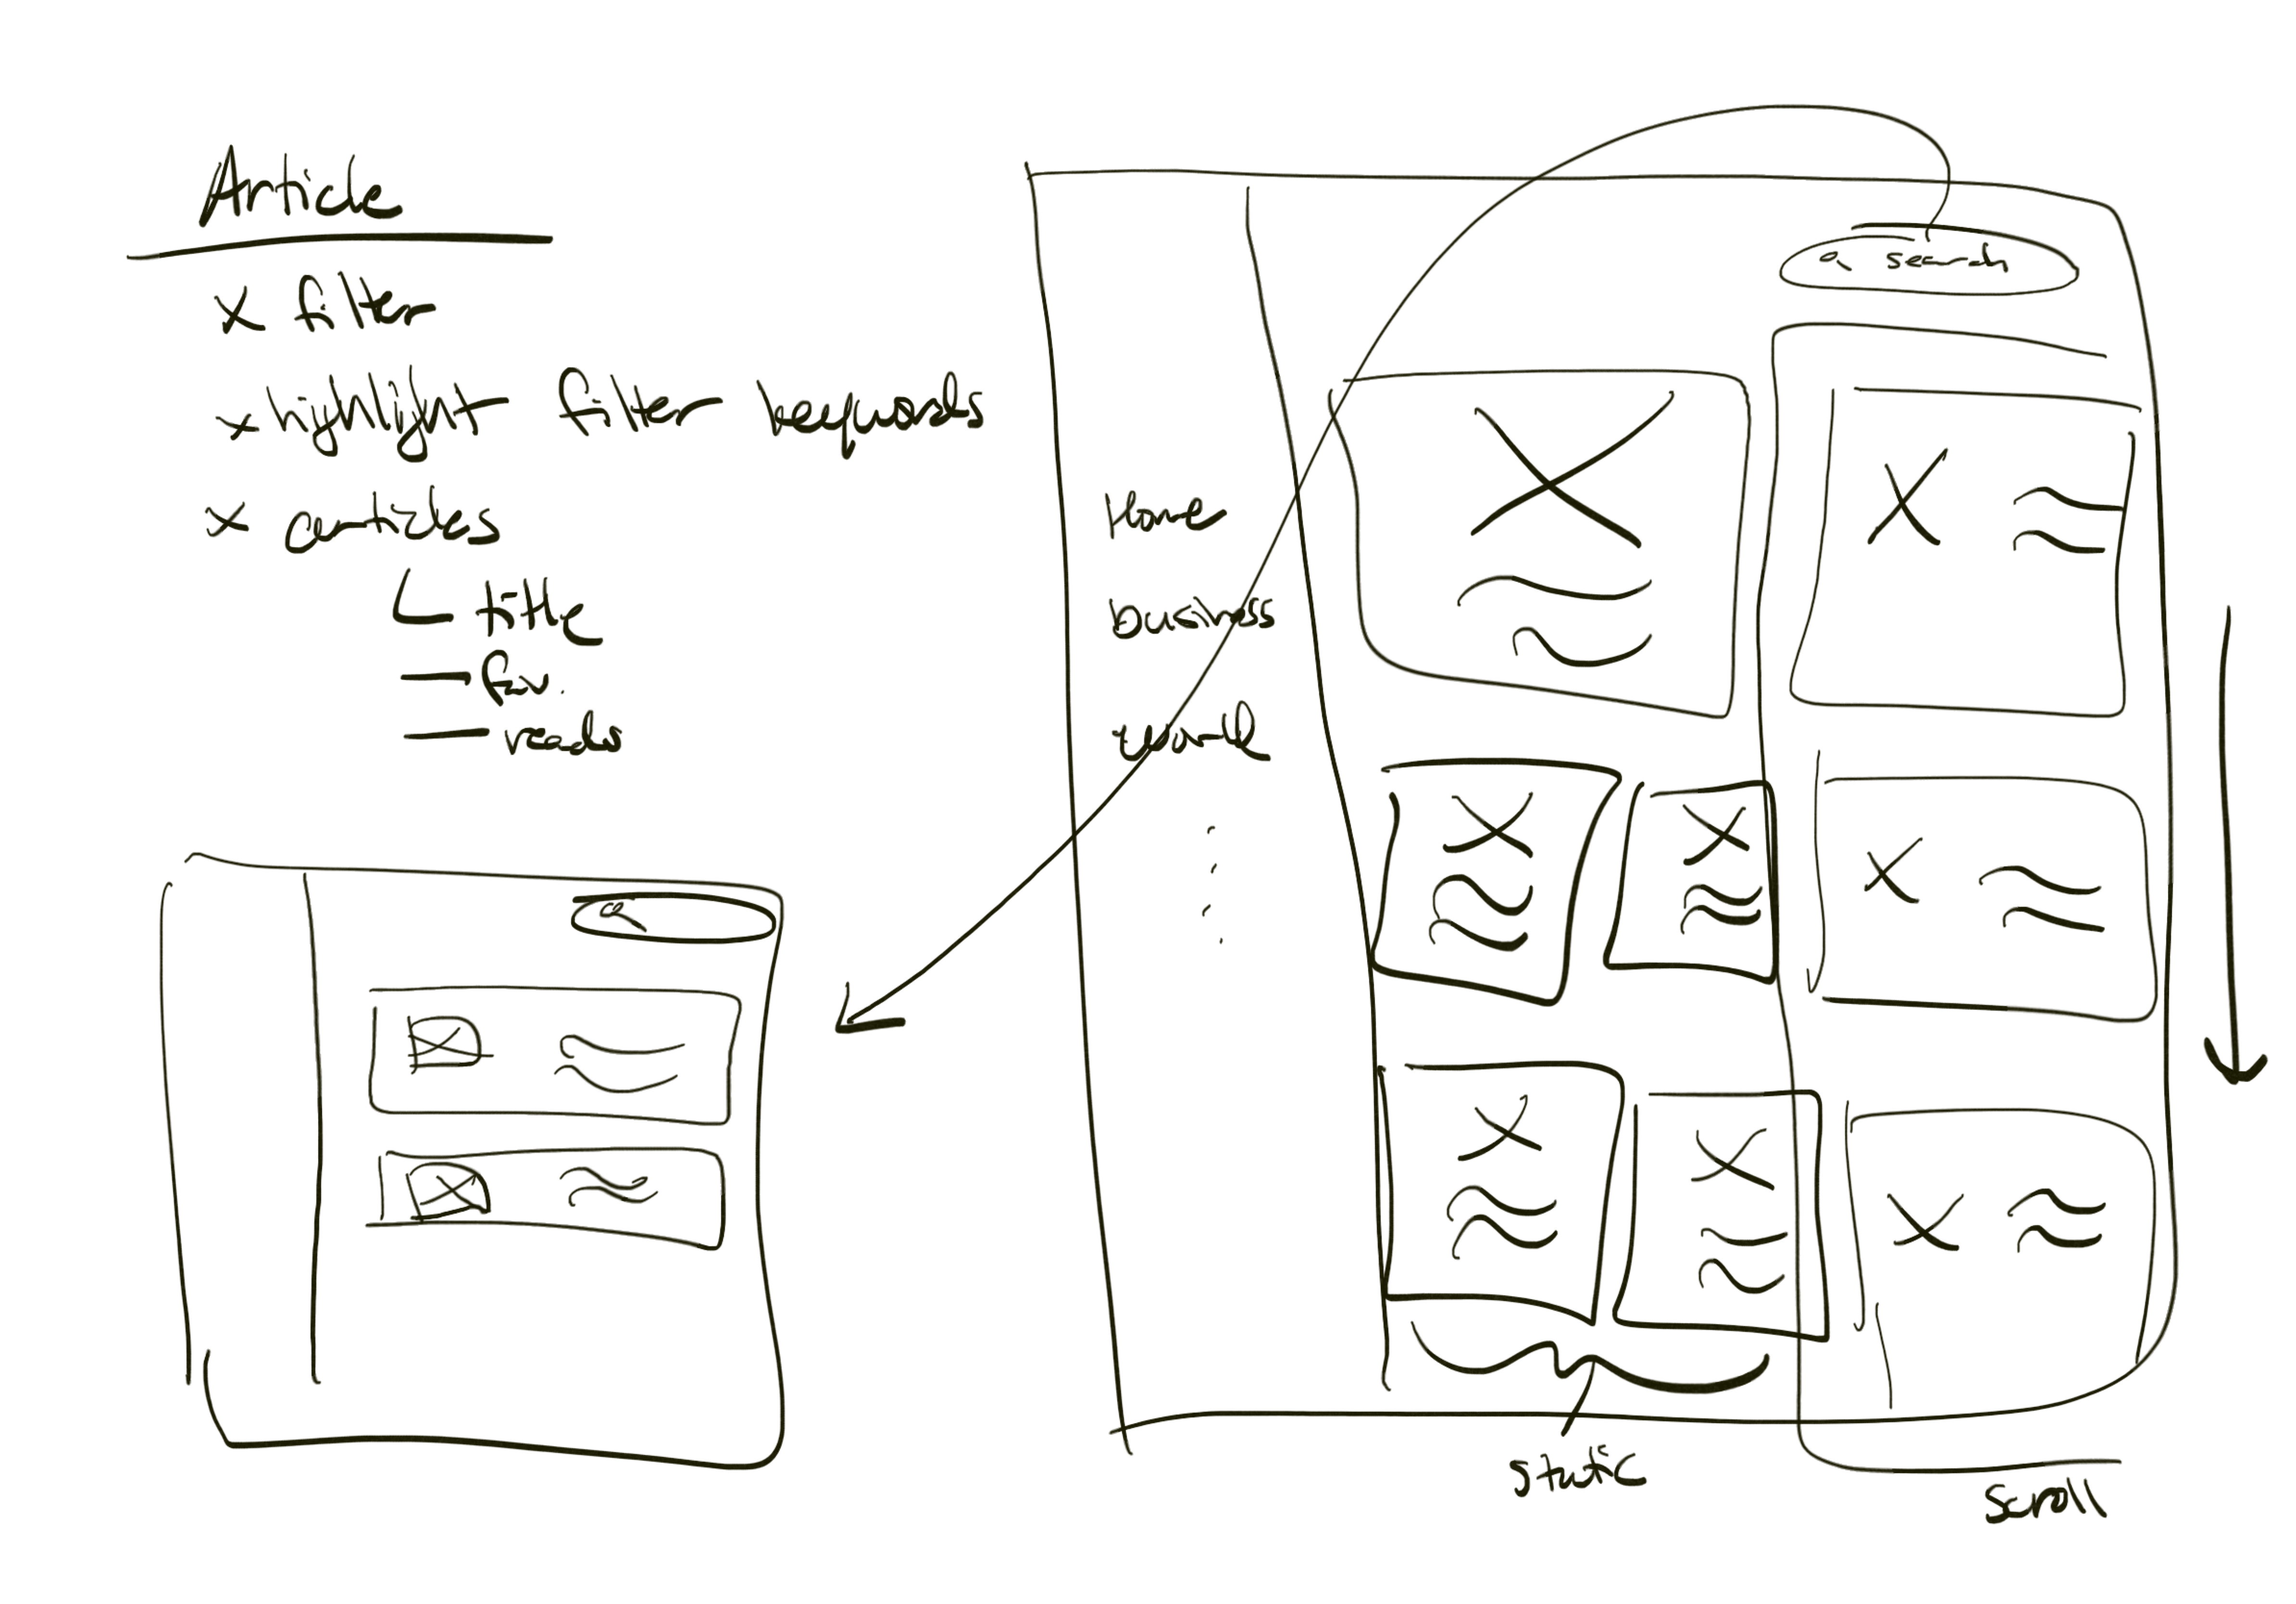 Article
x filter
x highlight filter keywords
x articles
title
fav.
reads
search
Home
business
world
static
scroll